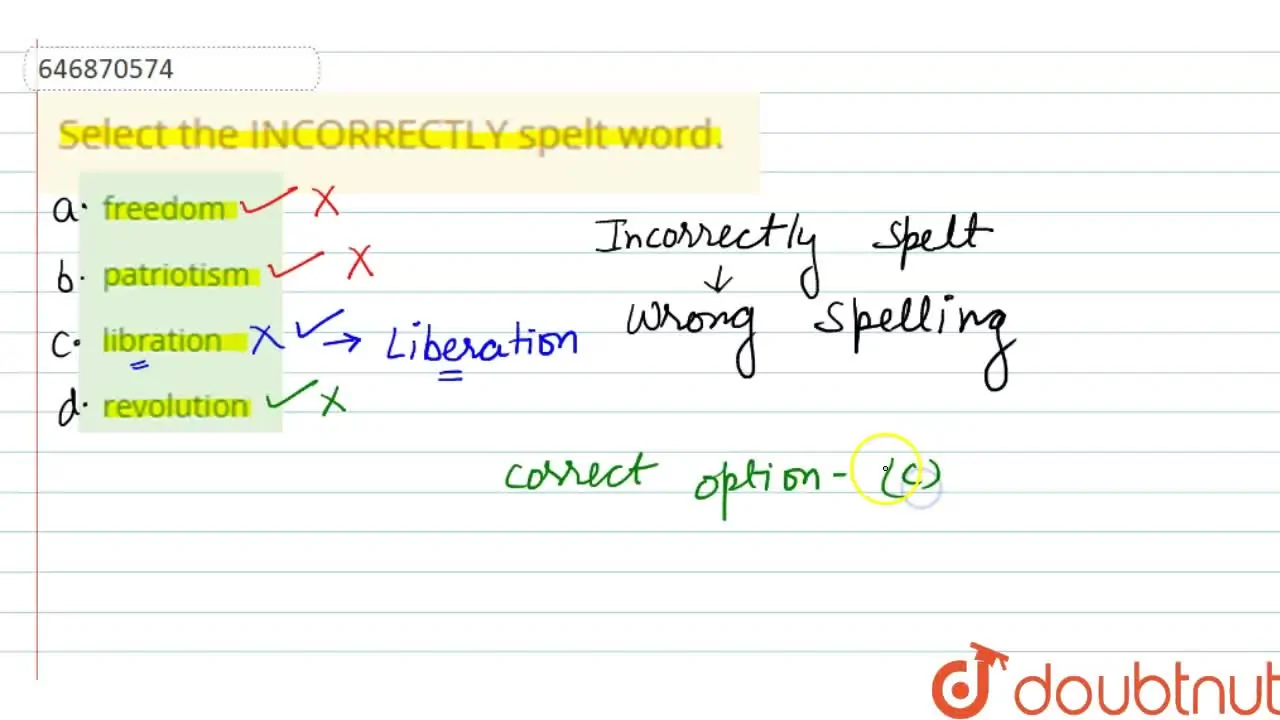 646870574
Select the INCORRECTLY spelt word.
a. freedom ✓ X
b. patriotism ✓ X
c. libration X ✓ → Liberation
d. revolution ✓ X
Incorrectly spelt
↓
Wrong spelling
correct option - (c)
doubtnut